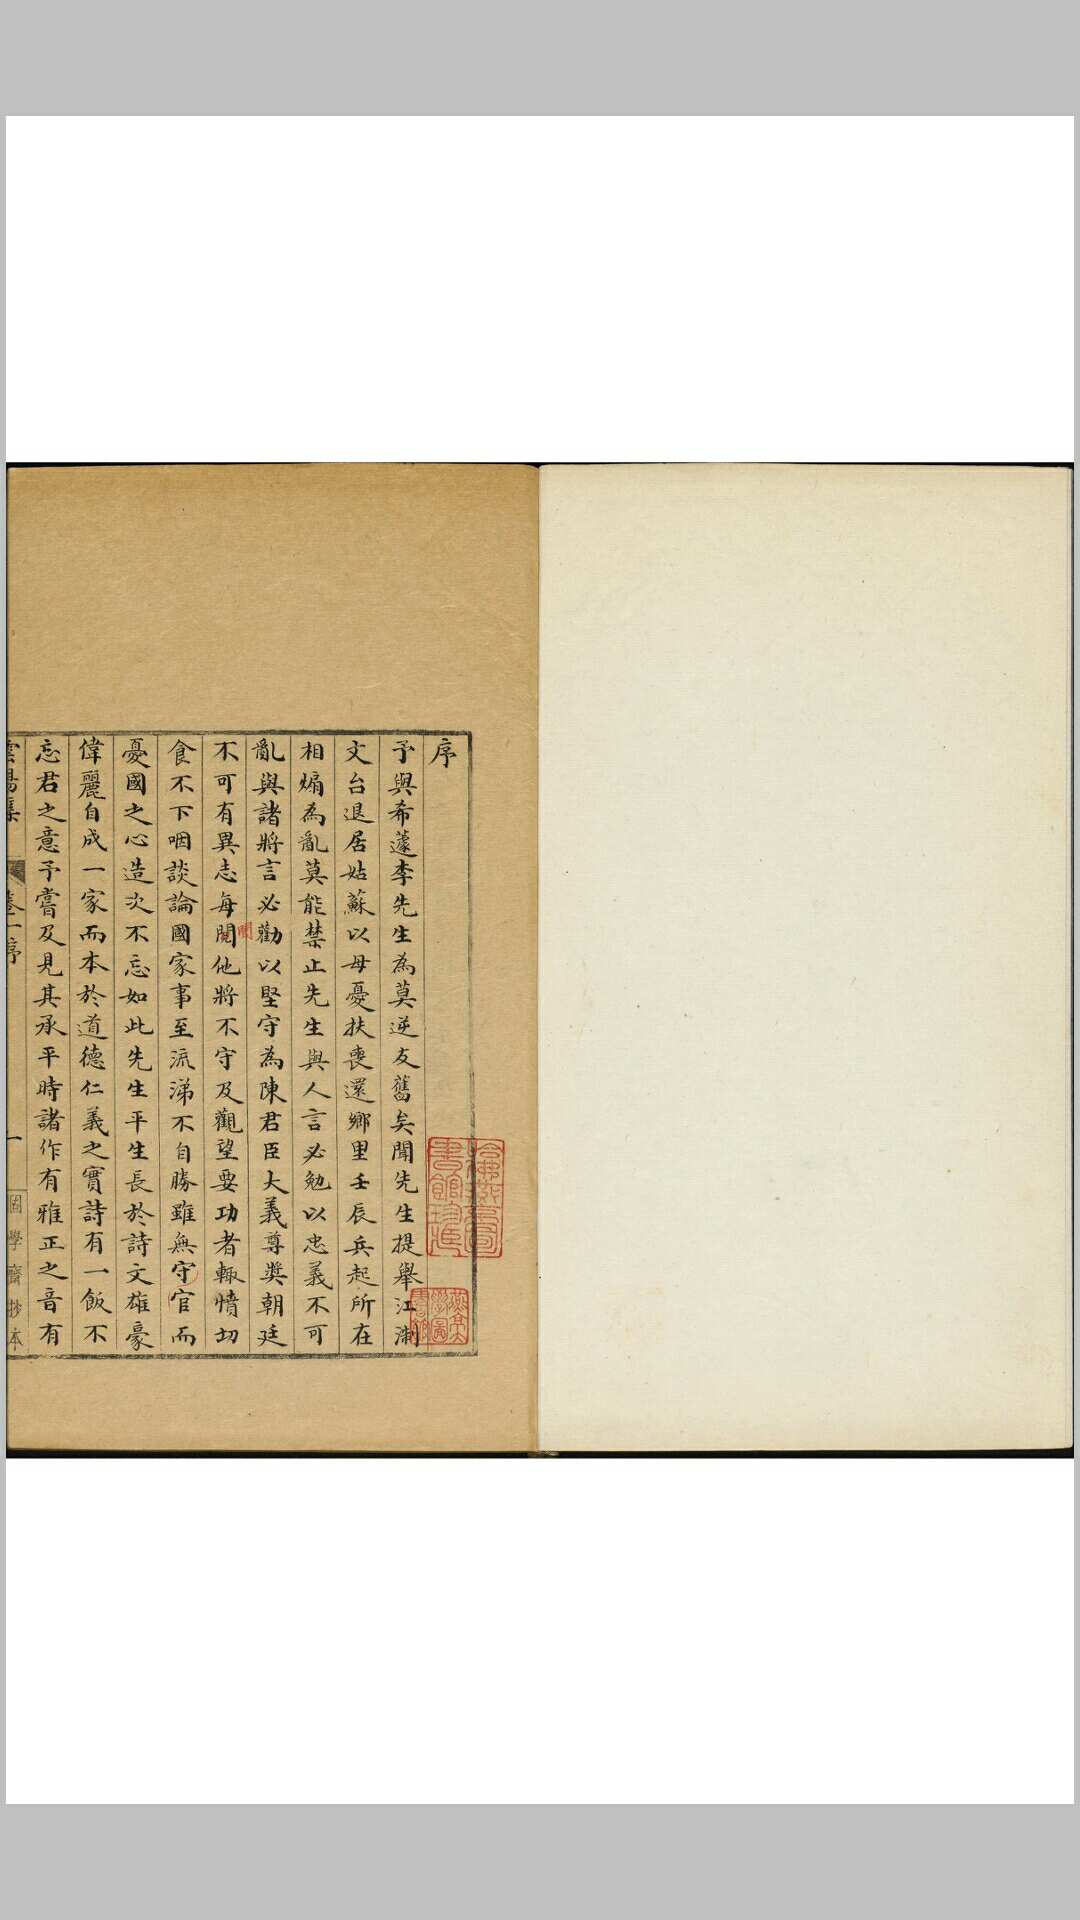 序
予與希蘧李先生為莫逆友舊矣聞先生提舉江淛
文台退居姑蘇以母憂扶喪還鄉里壬辰兵起所在
相煽為亂莫能禁止先生與人言必勉以忠義不可
亂與諸將言必勸以堅守為陳君臣大義尊奬朝廷
不可有異志每聞他將不守及觀望要功者輙憤切
聞
食不下咽談論國家事至流涕不自勝雖無守官而
憂國之心造次不忘如此先生平生長於詩文雄豪
偉麗自成一家而本於道德仁義之實詩有一飯不
忘君之意予嘗及見其承平時諸作有雅正之音有
雲陽集 卷一序 一 學齋抄本
哈佛燕京圖書館珍藏